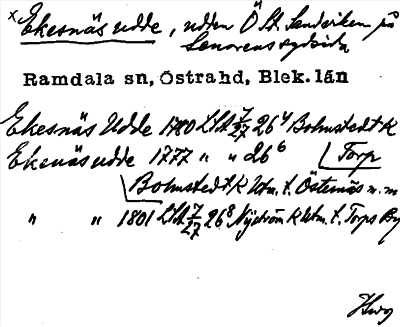 ×Ekesnäs udde, udden Ö St. Sandviken på
Senorens sydsida
Ramdala sn, Östrahd, Blek. län
Ekesnäs Udde 1780 LSA 7/27 26⁴ Bohmstedt K
Ekenäs udde 1777 " " 26⁶ Torp
Bohmstedt K Utm. t. Östernäs m.m
" " 1801 LSA 7/27 26⁸ Nyström K Utm. t. Torps By